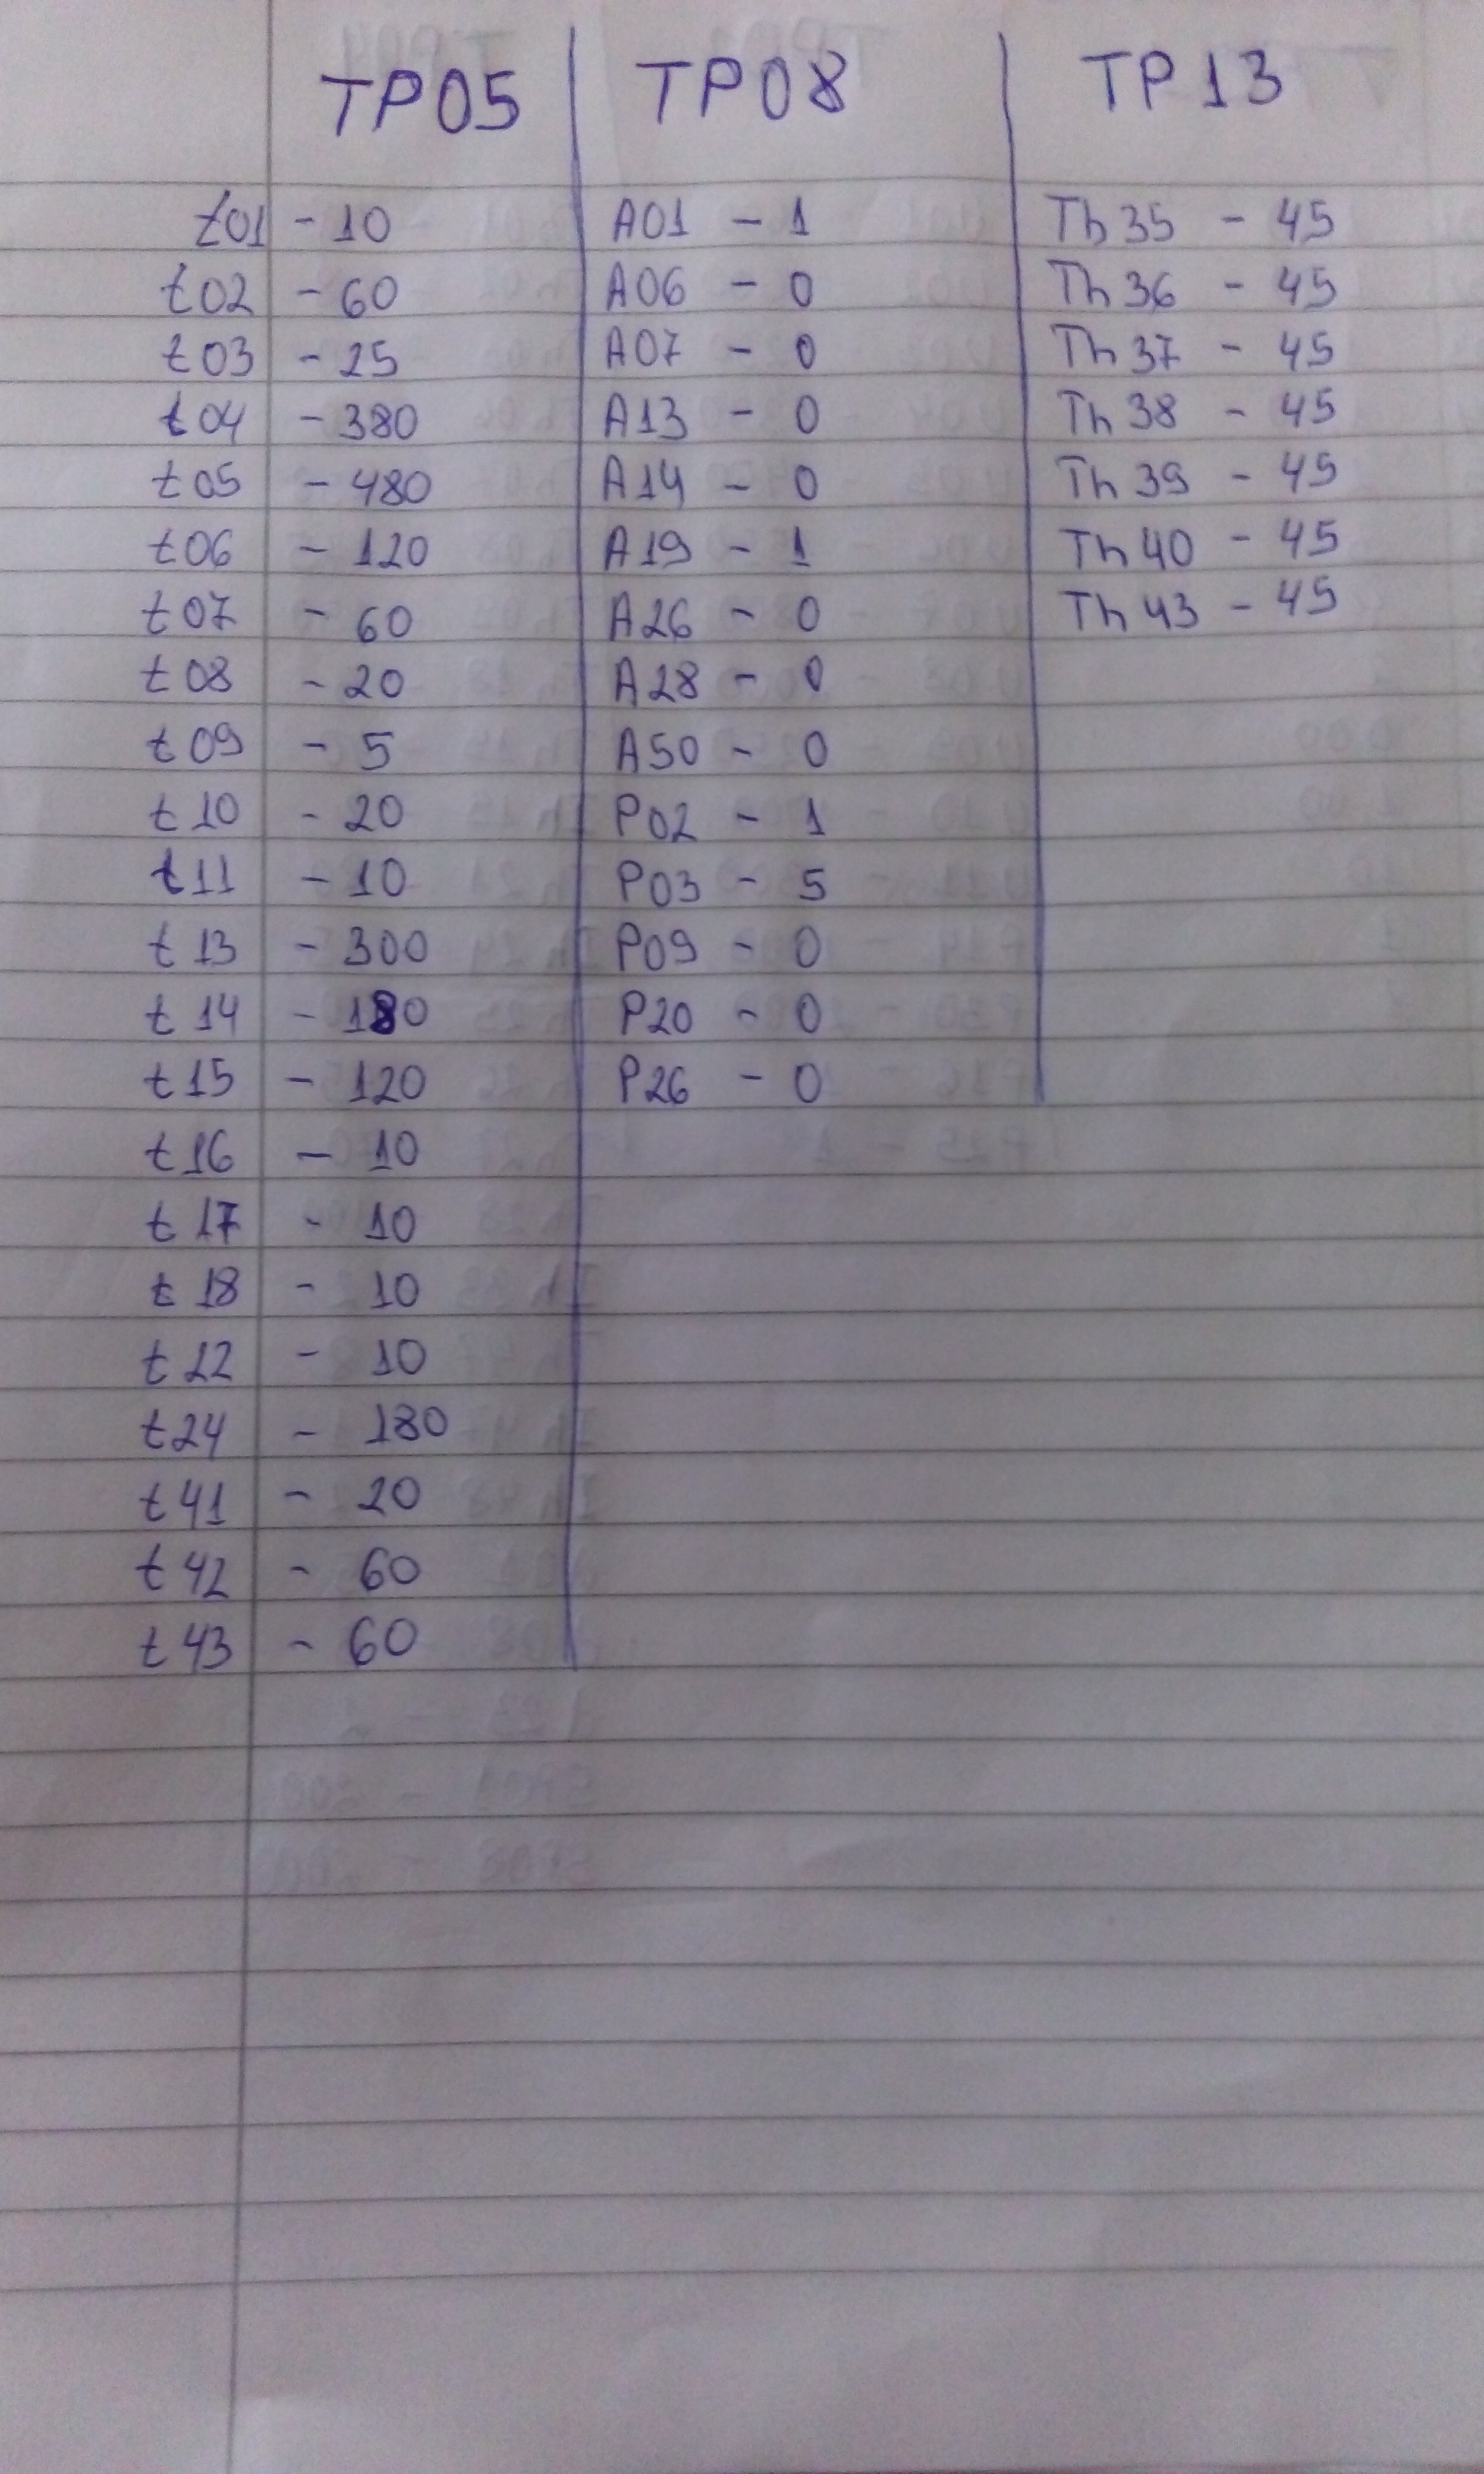 TP05 TP08 TP13
t01 - 10 A01 - 1 Th35 - 45
t02 - 60 A06 - 0 Th36 - 45
t03 - 25 A07 - 0 Th37 - 45
t04 - 380 A13 - 0 Th38 - 45
t05 - 480 A14 - 0 Th39 - 45
t06 - 120 A19 - 1 Th40 - 45
t07 - 60 A26 - 0 Th43 - 45
t08 - 20 A28 - 0
t09 - 5 A50 - 0
t10 - 20 P02 - 1
t11 - 10 P03 - 5
t13 - 300 P09 - 0
t14 - 180 P20 - 0
t15 - 120 P26 - 0
t16 - 10
t17 - 10
t18 - 10
t22 - 10
t24 - 180
t41 - 20
t42 - 60
t43 - 60